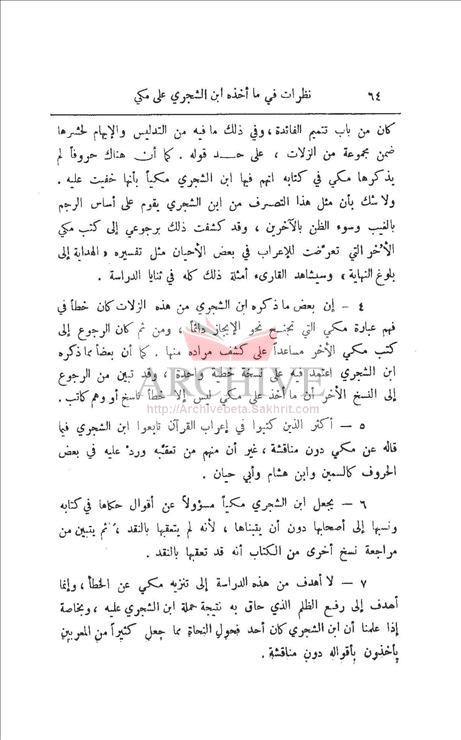 ٦٤ نظرات في ما أخذه ابن الشجري على مكي
كان من باب تتميم الفائدة ، وفي ذلك ما فيه من التدليس والإيهام لحشرها
ضمن مجموعة من الزلات ، على حد قوله . كما أن هناك حروفاً لم
يذكرها مكي في كتابه اتهم فيها ابن الشجري مكياً بأنها خفيت عليه .
ولا شك بأن مثل هذا التصرف من ابن الشجري يقوم على أساس الرجم
بالغيب وسوء الظن بالآخرين ، وقد كشفت ذلك برجوعي إلى كتب مكي
الأخر التي تعرضت للإعراب في بعض الأحيان مثل تفسيره « الهداية إلى
بلوغ النهاية » وسيشاهد القارىء أمثلة ذلك كله في ثنايا الدراسة .
٤ – إن بعض ما ذكره ابن الشجري من هذه الزلات كان خطأ في
فهم عبارة مكي التي تجنح نحو الإيجاز دائماً ، ومن ثم كان الرجوع إلى
كتب مكي الأخر مساعداً على كشف مراده منها . كما أن بعضاً مما ذكره
ابن الشجري اعتمد فيه على نسخة خطية واحدة ، وقد تبين من الرجوع
إلى النسخ الأخر أن ما أخذ على مكي ليس إلا خطأ ناسخ أو وهم كاتب .
ARCHIVE
http://Archivebeta.Sakhrit.com
٥ – أكثر الذين كتبوا في إعراب القرآن تابعوا ابن الشجري فيما
قاله عن مكي دون مناقشة ، غير أن منهم من تعقبه ورد عليه في بعض
الحروف كالسمين وابن هشام وأبي حيان .
٦ – يجعل ابن الشجري مكياً مسؤولاً عن أقوال حكاها في كتابه
ونسبها إلى أصحابها دون أن يتبناها ، لأنه لم يتعقبها بالنقد ، ثم يتبين من
مراجعة نسخ أخرى من الكتاب أنه قد تعقبها بالنقد .
٧ – لا أهدف من هذه الدراسة إلى تنزيه مكي عن الخطأ ، وإنما
أهدف إلى رفع الظلم الذي حاق به نتيجة حملة ابن الشجري عليه ، وبخاصة
إذا علمنا أن ابن الشجري كان أحد فحول النحاة مما جعل كثيراً من المعربين
يأخذون بأقواله دون مناقشة .